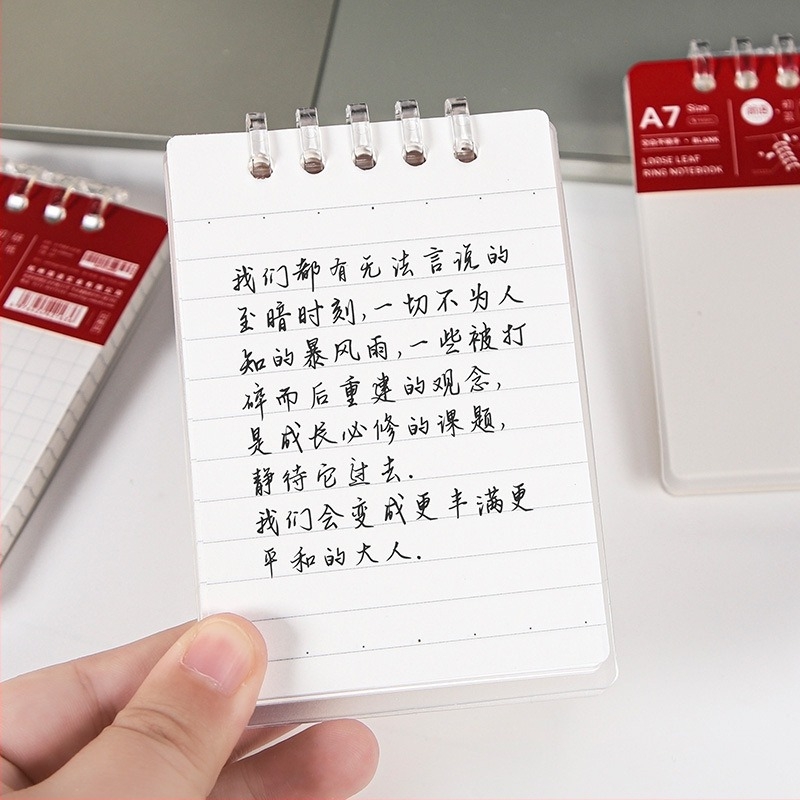 我们都有无法言说的
至暗时刻,一切不为人
知的暴风雨,一些被打
碎而后重建的观念,
是成长必修的课题,
静待它过去.
我们会变成更丰满更
平和的大人.
A7 Size
BLANK
LOOSE LEAF
RING NOTEBOOK